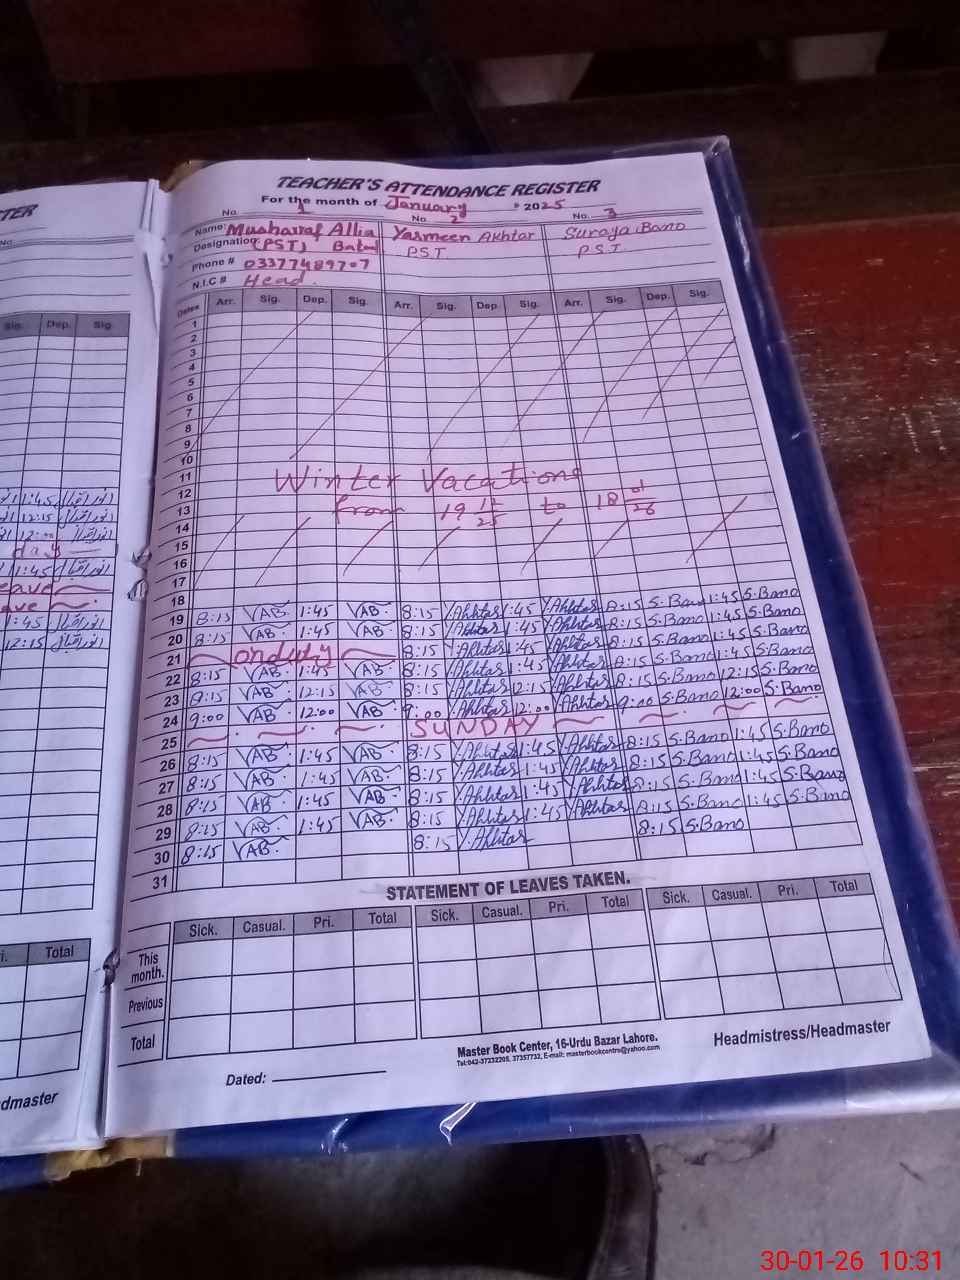 TEACHER'S ATTENDANCE REGISTER
For the month of January 2025
No. 1 No. 2 No. 3
Name: Musharraf Allia Yasmeen Akhtar Suraya Bano
Designation: (PST) Batul P.S.T. P.S.T
Phone # 03377489707
N.I.C # Head.
Dates Arr. Sig. Dep. Sig. Arr. Sig. Dep. Sig. Arr. Sig. Dep. Sig.
1
2
3
4
5
6
7
8
9
10
11 Winter Vacations
12
13 from 19 12/25 to 18 01/26
14
15
16
17
18
19 8:15 VAB. 1:45 VAB. 8:15 Y.Akhtar 1:45 Y.Akhtar 8:15 S.Bano 1:45 S.Bano
20 8:15 VAB. 1:45 VAB. 8:15 Y.Akhtar 1:45 Y.Akhtar 8:15 S.Bano 1:45 S.Bano
21 onduty 8:15 Y.Akhtar 1:45 Y.Akhtar 8:15 S.Bano 1:45 S.Bano
22 8:15 VAB. 1:45 VAB. 8:15 Y.Akhtar 1:45 Y.Akhtar 8:15 S.Bano 1:45 S.Bano
23 8:15 VAB. 12:15 VAB. 8:15 Y.Akhtar 12:15 Y.Akhtar 8:15 S.Bano 12:15 S.Bano
24 9:00 VAB. 12:00 VAB. 9:00 Y.Akhtar 12:00 Y.Akhtar 9:00 S.Bano 12:00 S.Bano
25 SUNDAY
26 8:15 VAB. 1:45 VAB. 8:15 Y.Akhtar 1:45 Y.Akhtar 8:15 S.Bano 1:45 S.Bano
27 8:15 VAB. 1:45 VAB. 8:15 Y.Akhtar 1:45 Y.Akhtar 8:15 S.Bano 1:45 S.Bano
28 8:15 VAB. 1:45 VAB. 8:15 Y.Akhtar 1:45 Y.Akhtar 8:15 S.Bano 1:45 S.Bano
29 8:15 VAB. 1:45 VAB. 8:15 Y.Akhtar 1:45 Y.Akhtar 8:15 S.Bano 1:45 S.Bano
30 8:15 VAB. 8:15 Y.Akhtar 8:15 S.Bano
31
STATEMENT OF LEAVES TAKEN.
Sick. Casual. Pri. Total Sick. Casual. Pri. Total Sick. Casual. Pri. Total
This month.
Previous
Total
Master Book Center, 16-Urdu Bazar Lahore.
Tel:042-37232205, 37357732, E-mail: masterbookcentre@yahoo.com
Headmistress/Headmaster
Dated:
Sig. Dep. Sig.
1:45
12:15
12:00
day
1:45
1:45
12:15
Total
30-01-26 10:31